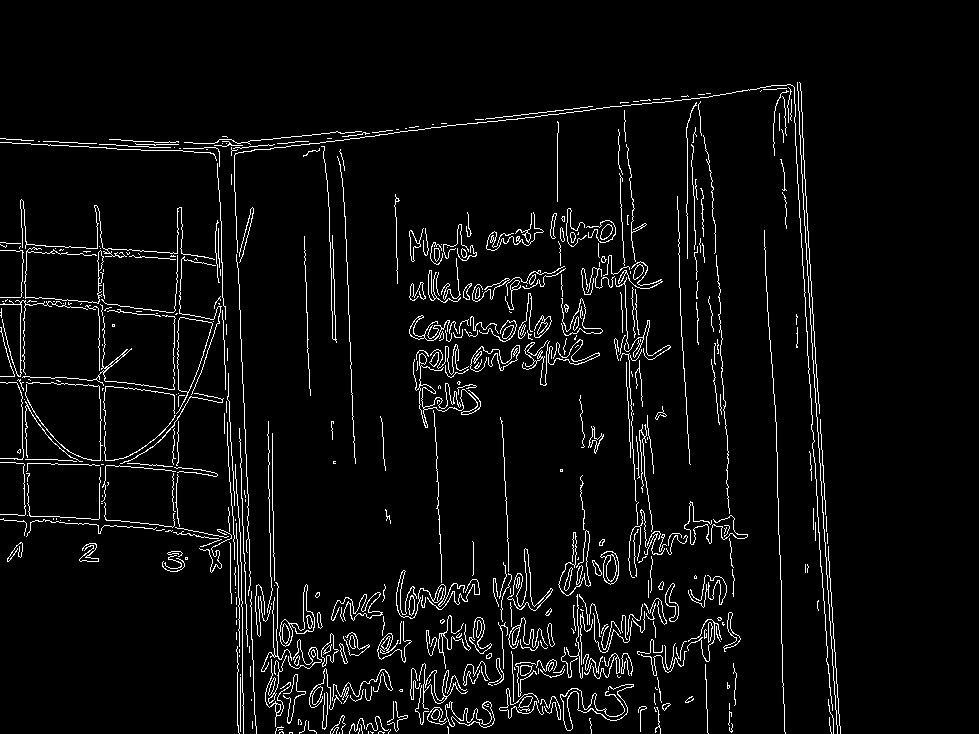 1 2 3 x
Morbi erat libero
ullacorper vitae
commodo id
pellenesque id
felis
Morbi nec lorem vel odio phartra
molestie et vitae dui Mauris in
est quam. Mauris pretium turpis
tellus tempus